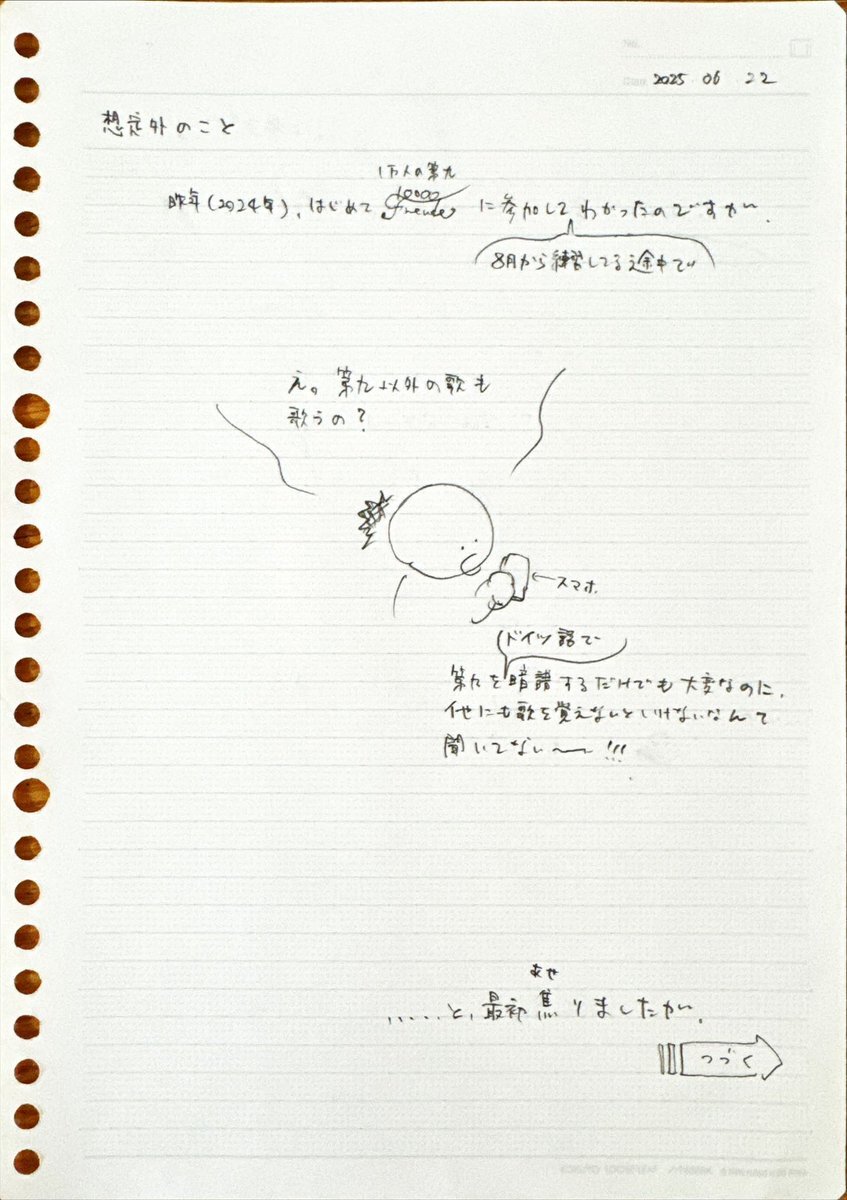 2025 06 22
想定外のこと
1万人の第九
昨年(2024年)、はじめて 10000 Freude に参加してわかったのですが、
8月から練習してる途中で
え。第九以外の歌も
歌うの?
←スマホ
ドイツ語で
第九を暗譜するだけでも大変なのに、
他にも歌を覚えないといけないなんて
聞いてない〜〜!!!
あせ
.....と、最初焦りましたが、
つづく